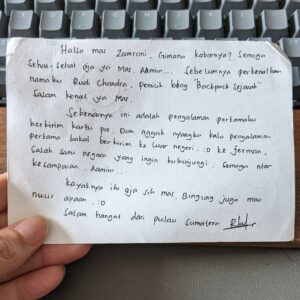 Hallo mas Zamroni, Gimana kabarnya? Semoga
Sehat-Sehat aja ya Mas. Aamiin... Sebelumnya perkenalkan
namaku Rudi Chandra, pemilik blog "Backpack Sejarah"
Salam kenal ya Mas.
Sebenarnya ini adalah pengalaman pertamaku
berkirim kartu pos. Dan nggak nyangka kalo pengalaman
pertama bakal berkirim ke luar negeri. :D ke Jerman,
Salah satu negara yang ingin kukunjungi. Semoga ntar
kesampaian. Aamiin...
Kayaknya itu aja sih mas. Bingung juga mau
nulis apaan. :D
Salam hangat dari pulau Sumatera